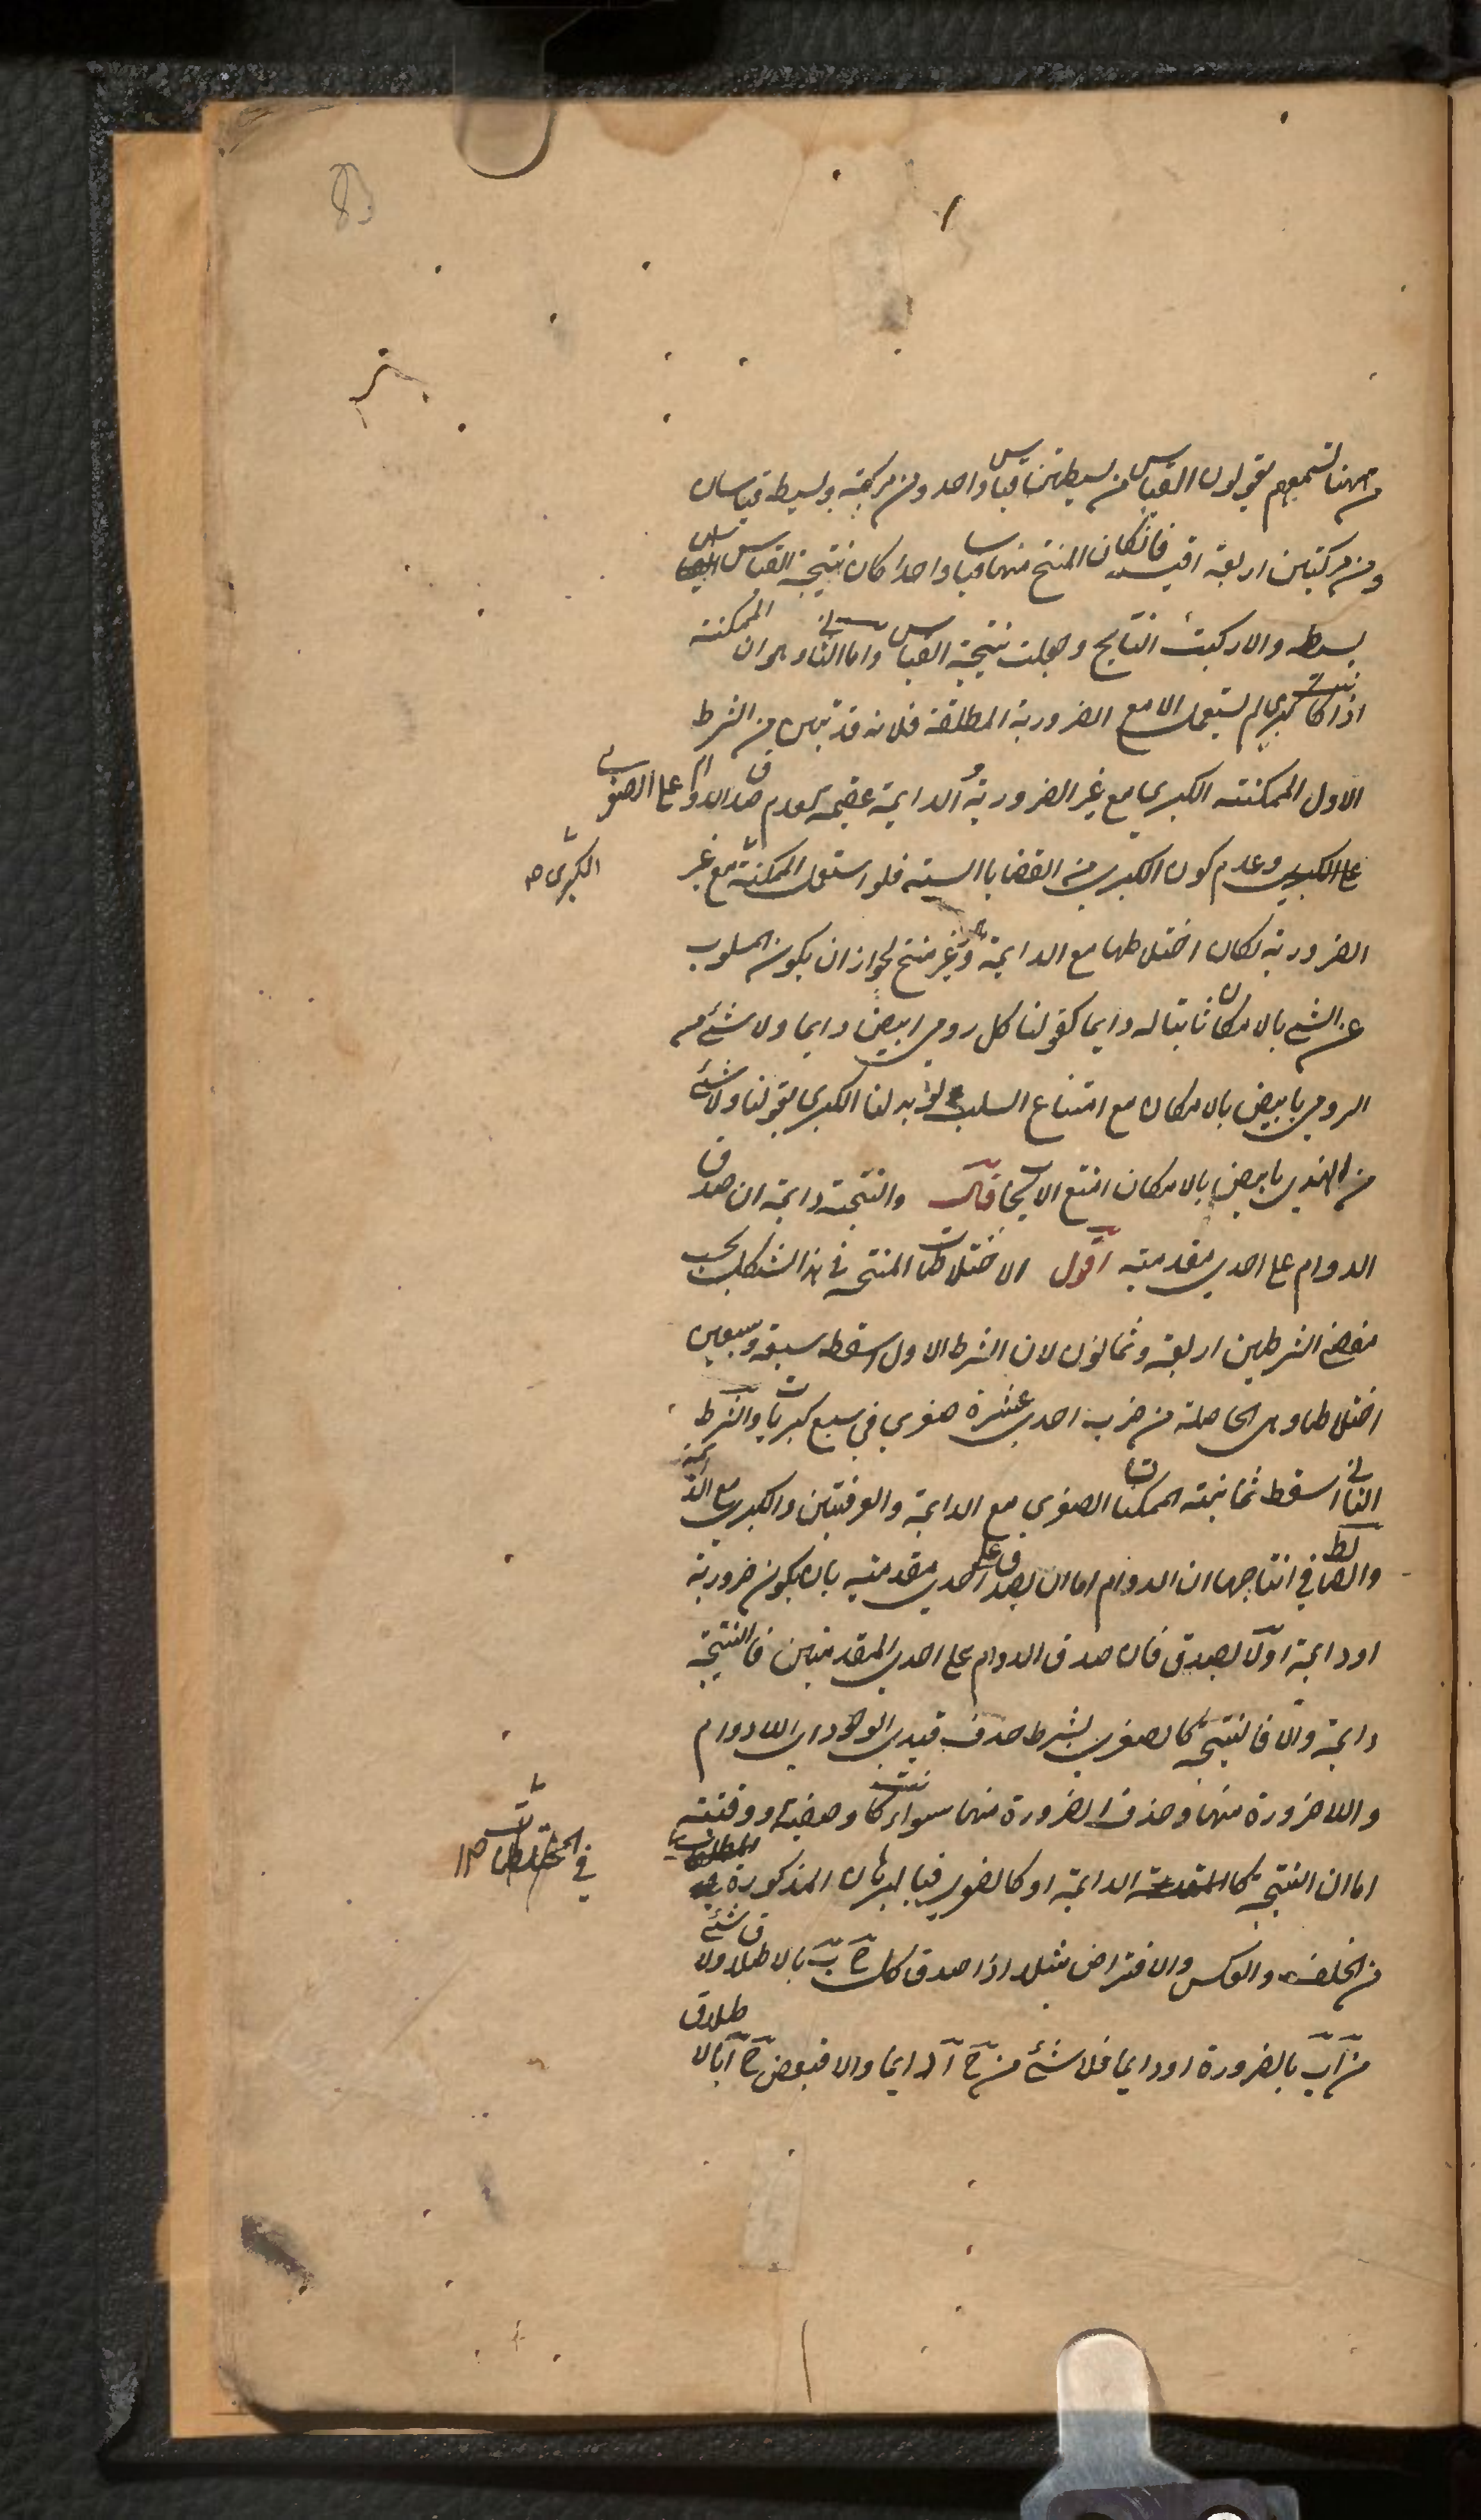 من ههنا تسمعهم يقولون القياس من بسيطتين قياس واحد ومن مركبة وبسيطة قياسان
ومن مركبتين اربعة اقيسة فانكان المنتج منها قياسا واحدا كان نتيجة القياس
بسيطة والا ركبت النتايج وجعلت نتيجة القياس واما الثاني وهو ان الممكنة
اذا كانت كبرى لم تستعمل الا مع الضرورية المطلقة فلانه قد تبين من الشرط
الاول الممكنة الكبرى مع غير الضرورية والدايمة عقيمة لعدم صدق الدوام على الصغرى
على الكبرى وعدم كون الكبرى من القضايا الستة فلو استعمل الممكنة مع غير
الكبرى صح
الضرورية لكان اختلاطها مع الدايمة وهو غير منتج لجواز ان يكون المسلوب
عن الشئ بالامكان ثابتا له دايما كقولنا كل رومي ابيض دايما ولا شئ من
الرومي بابيض بالامكان مع امتناع السلب ولو بدلنا الكبرى بقولنا ولا شئ
من الهندي بابيض بالامكان امتنع الايجاب قال والنتيجة دايمة ان صدق
الدوام على احدى مقدمتيه اقول الاختلاطات المنتجة في هذا الشكل بحسب
مقتضى الشرطين اربعة وثمانون لان الشرط الاول اسقط سبعة وسبعين
اختلاطا وهي الحاصلة من ضرب احدى عشرة صغرى في سبع كبريات والشرط
الثاني اسقط ثمانية الممكنتان الصغرى مع الدايمة والعرفيتين والكبرى مع الدايمة
والضابط في انتاجها ان الدوام اما ان يصدق على احدى مقدمتيه بان يكون ضرورية
او دايمة او لا يصدق فان صدق الدوام على احدى المقدمتين فالنتيجة
دايمة والا فالنتيجة كالصغرى بشرط حذف قيدي الوجود اى اللادوام
واللاضرورة منها وحذف الضرورة منها سواء كانت وصفية او وقتية
اما ان النتيجة كالمقدمة الدايمة او كالصغرى فبالبرهان المذكورة
في المختلطات صح
من الخلف والعكس والافتراض مثلا اذا صدق كل ج ب بالاطلاق ولا شئ
من آ ب بالضرورة او دايما فلا شئ من ج آ دايما والا فبعض ج آ بالاطلاق